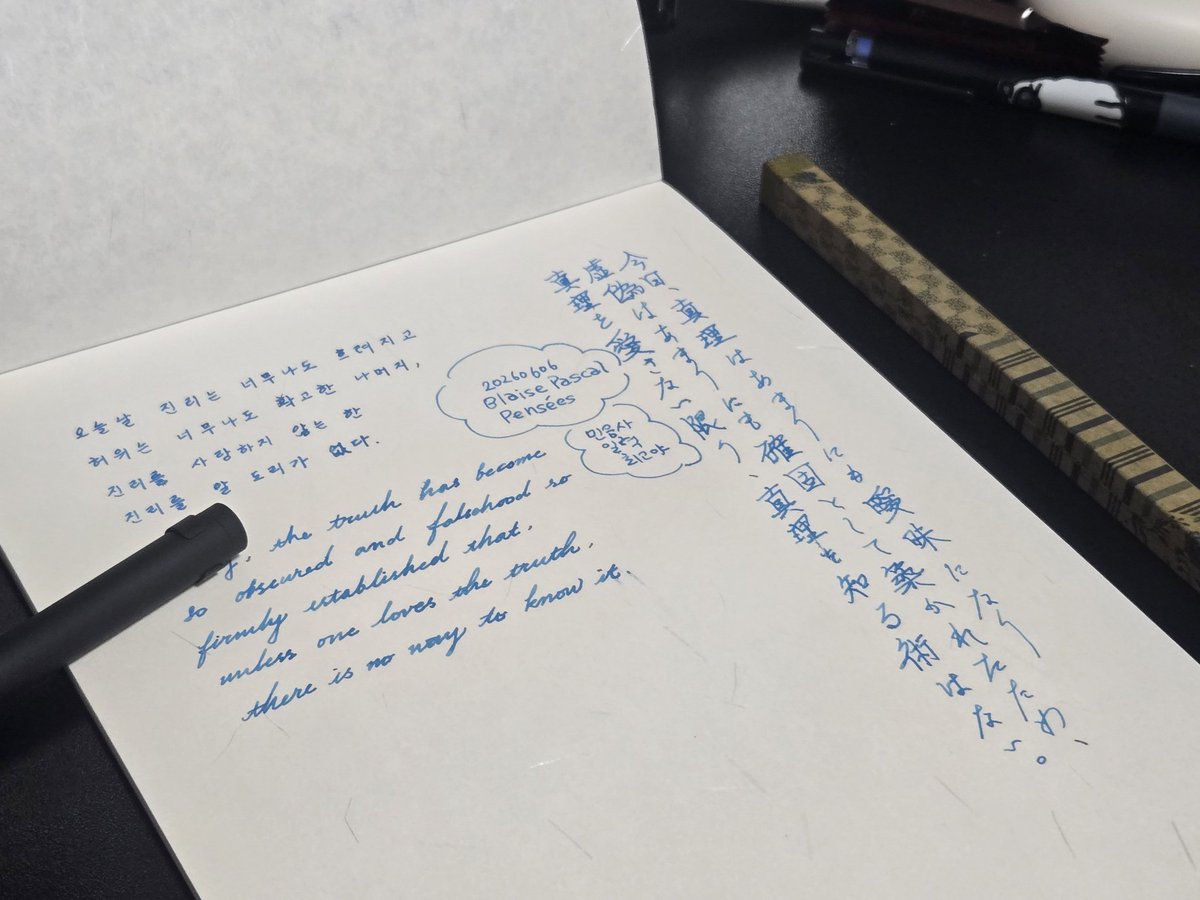 오늘날 진리는 너무나도 흐려지고
허위는 너무나도 확고한 나머지,
진리를 사랑하지 않는 한
진리를 알 도리가 없다.
20260606
Blaise Pascal
Pensées
민음사
일력
최고야
the truth has become
so obscured and falsehood so
firmly established that.
unless one loves the truth.
there is no way to know it.
今日、真理はあまりにも曖昧になり
虚偽はあまりにも確固として築かれたため、
真理を愛さない限り、真理を知る術はない。